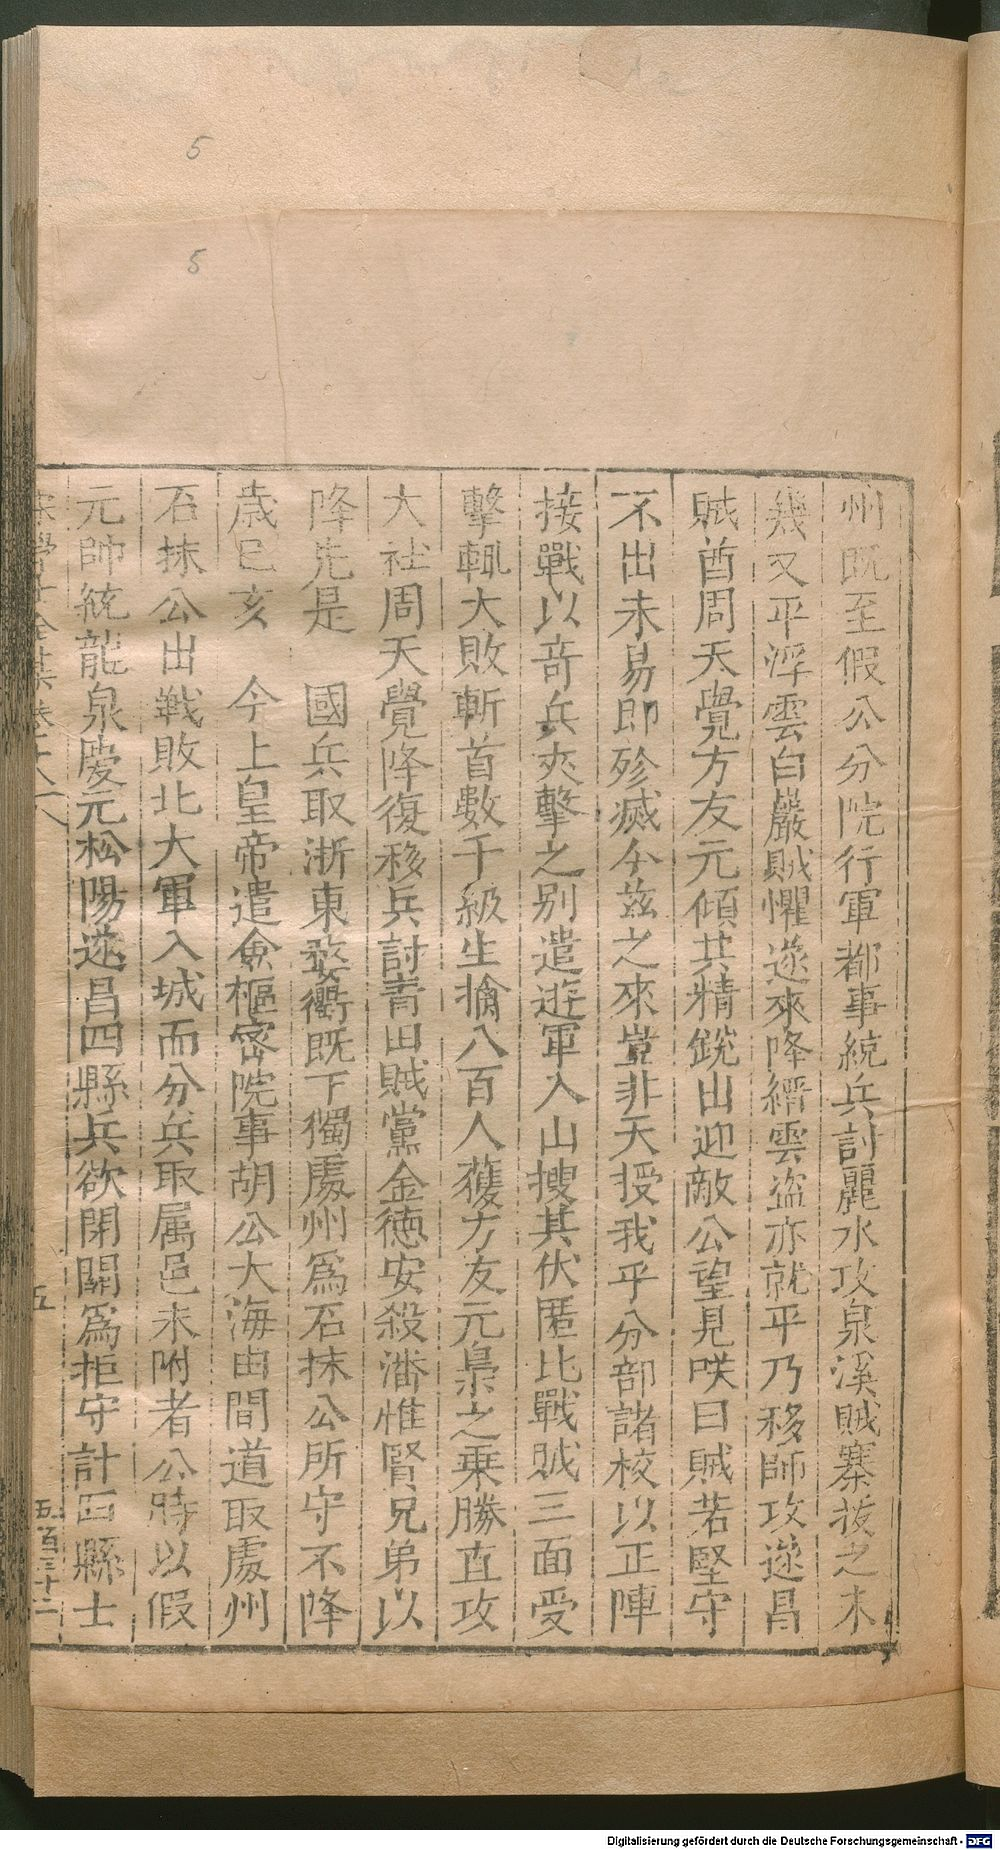 5
5
州既至假公分院行軍都事統兵討麗水攻泉溪賊寨拔之未
幾又平浮雲白巖賊懼遂來降縉雲盗亦就平乃移師攻遂昌
賊酋周天覺方友元傾其精銳出迎敵公望見咲曰賊若堅守
不出未易即殄滅今兹之來豈非天授我乎分部諸校以正陣
接戰以奇兵夾擊之别遣遊軍入山搜其伏匿比戰賊三面受
擊輒大敗斬首數千級生擒八百人獲方友元梟之乗勝直攻
大社周天覺降復移兵討青田賊黨金德安殺潘惟賢兄弟以
降先是　國兵取浙東婺衢既下獨處州爲石抹公所守不降
歳己亥　今上皇帝遣僉樞密院事胡公大海由間道取處州
石抹公出戦敗北大軍入城而分兵取属邑未附者公時以假
元帥統龍泉慶元松陽遂昌四縣兵欲閉關爲拒守計四縣士
宋學士全集卷二十八
五
五百三十二
Digitalisierung gefördert durch die Deutsche Forschungsgemeinschaft - DFG